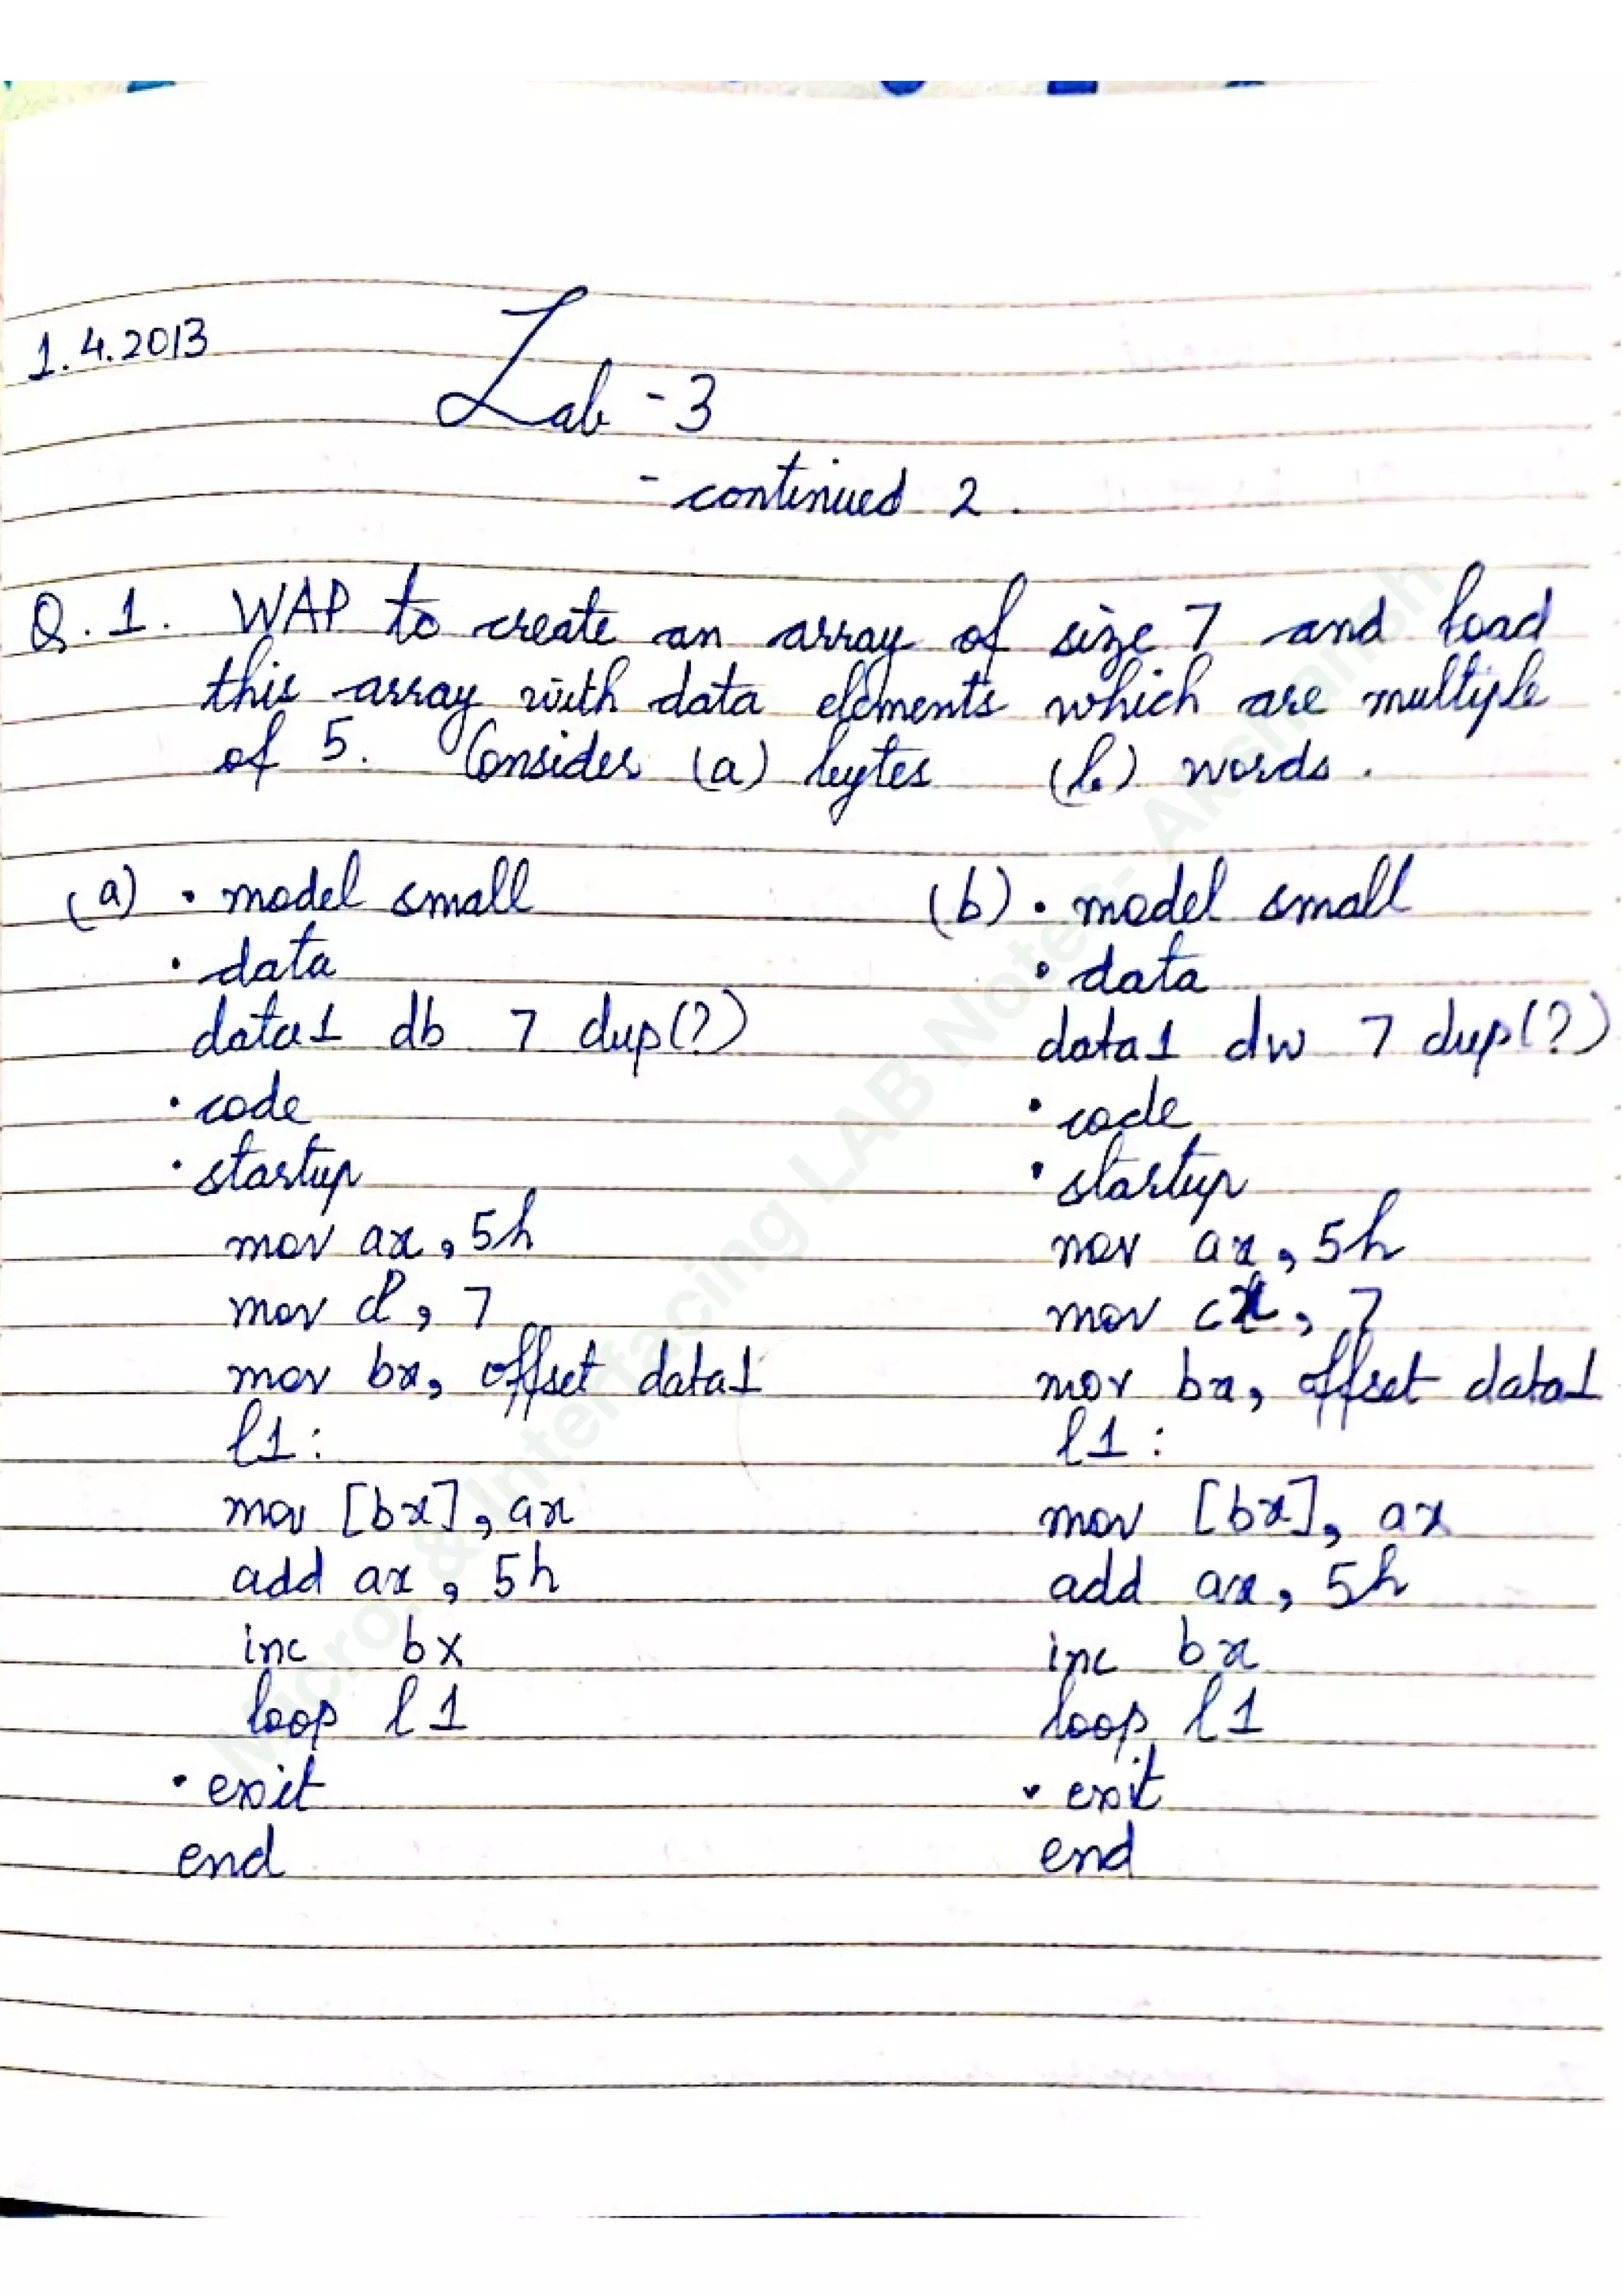 1.4.2013
Lab - 3
- continued 2.
Q.1. WAP to create an array of size 7 and load
this array with data elements which are multiple
of 5. Consider (a) bytes (b) words.
(a) .model small
.data
data1 db 7 dup(?)
.code
.startup
mov ax, 5h
mov cl, 7
mov bx, offset data1
l1:
mov [bx], ax
add ax, 5h
inc bx
loop l1
.exit
end
(b) .model small
.data
data1 dw 7 dup(?)
.code
.startup
mov ax, 5h
mov cx, 7
mov bx, offset data1
l1:
mov [bx], ax
add ax, 5h
inc bx
loop l1
.exit
end
Micro. & Interfacing LAB Notes- Akshansh